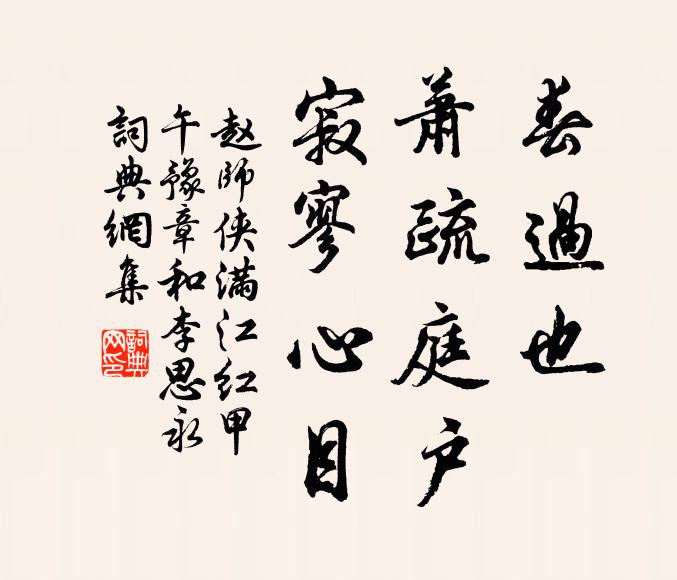 春過也
蕭疏庭户
寂寥心目
赵師侠滿江红甲
午豫章和李思永
詞典網集
詞典
网印